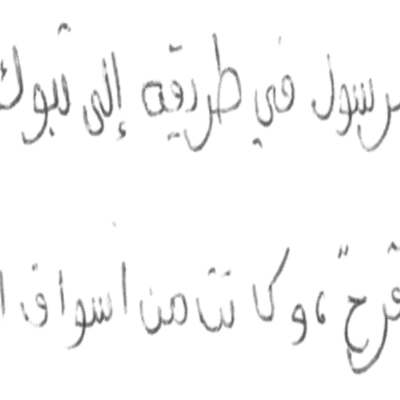 رسول في طريقه إلى تبوك
قرح، وكانت من أسواق ا